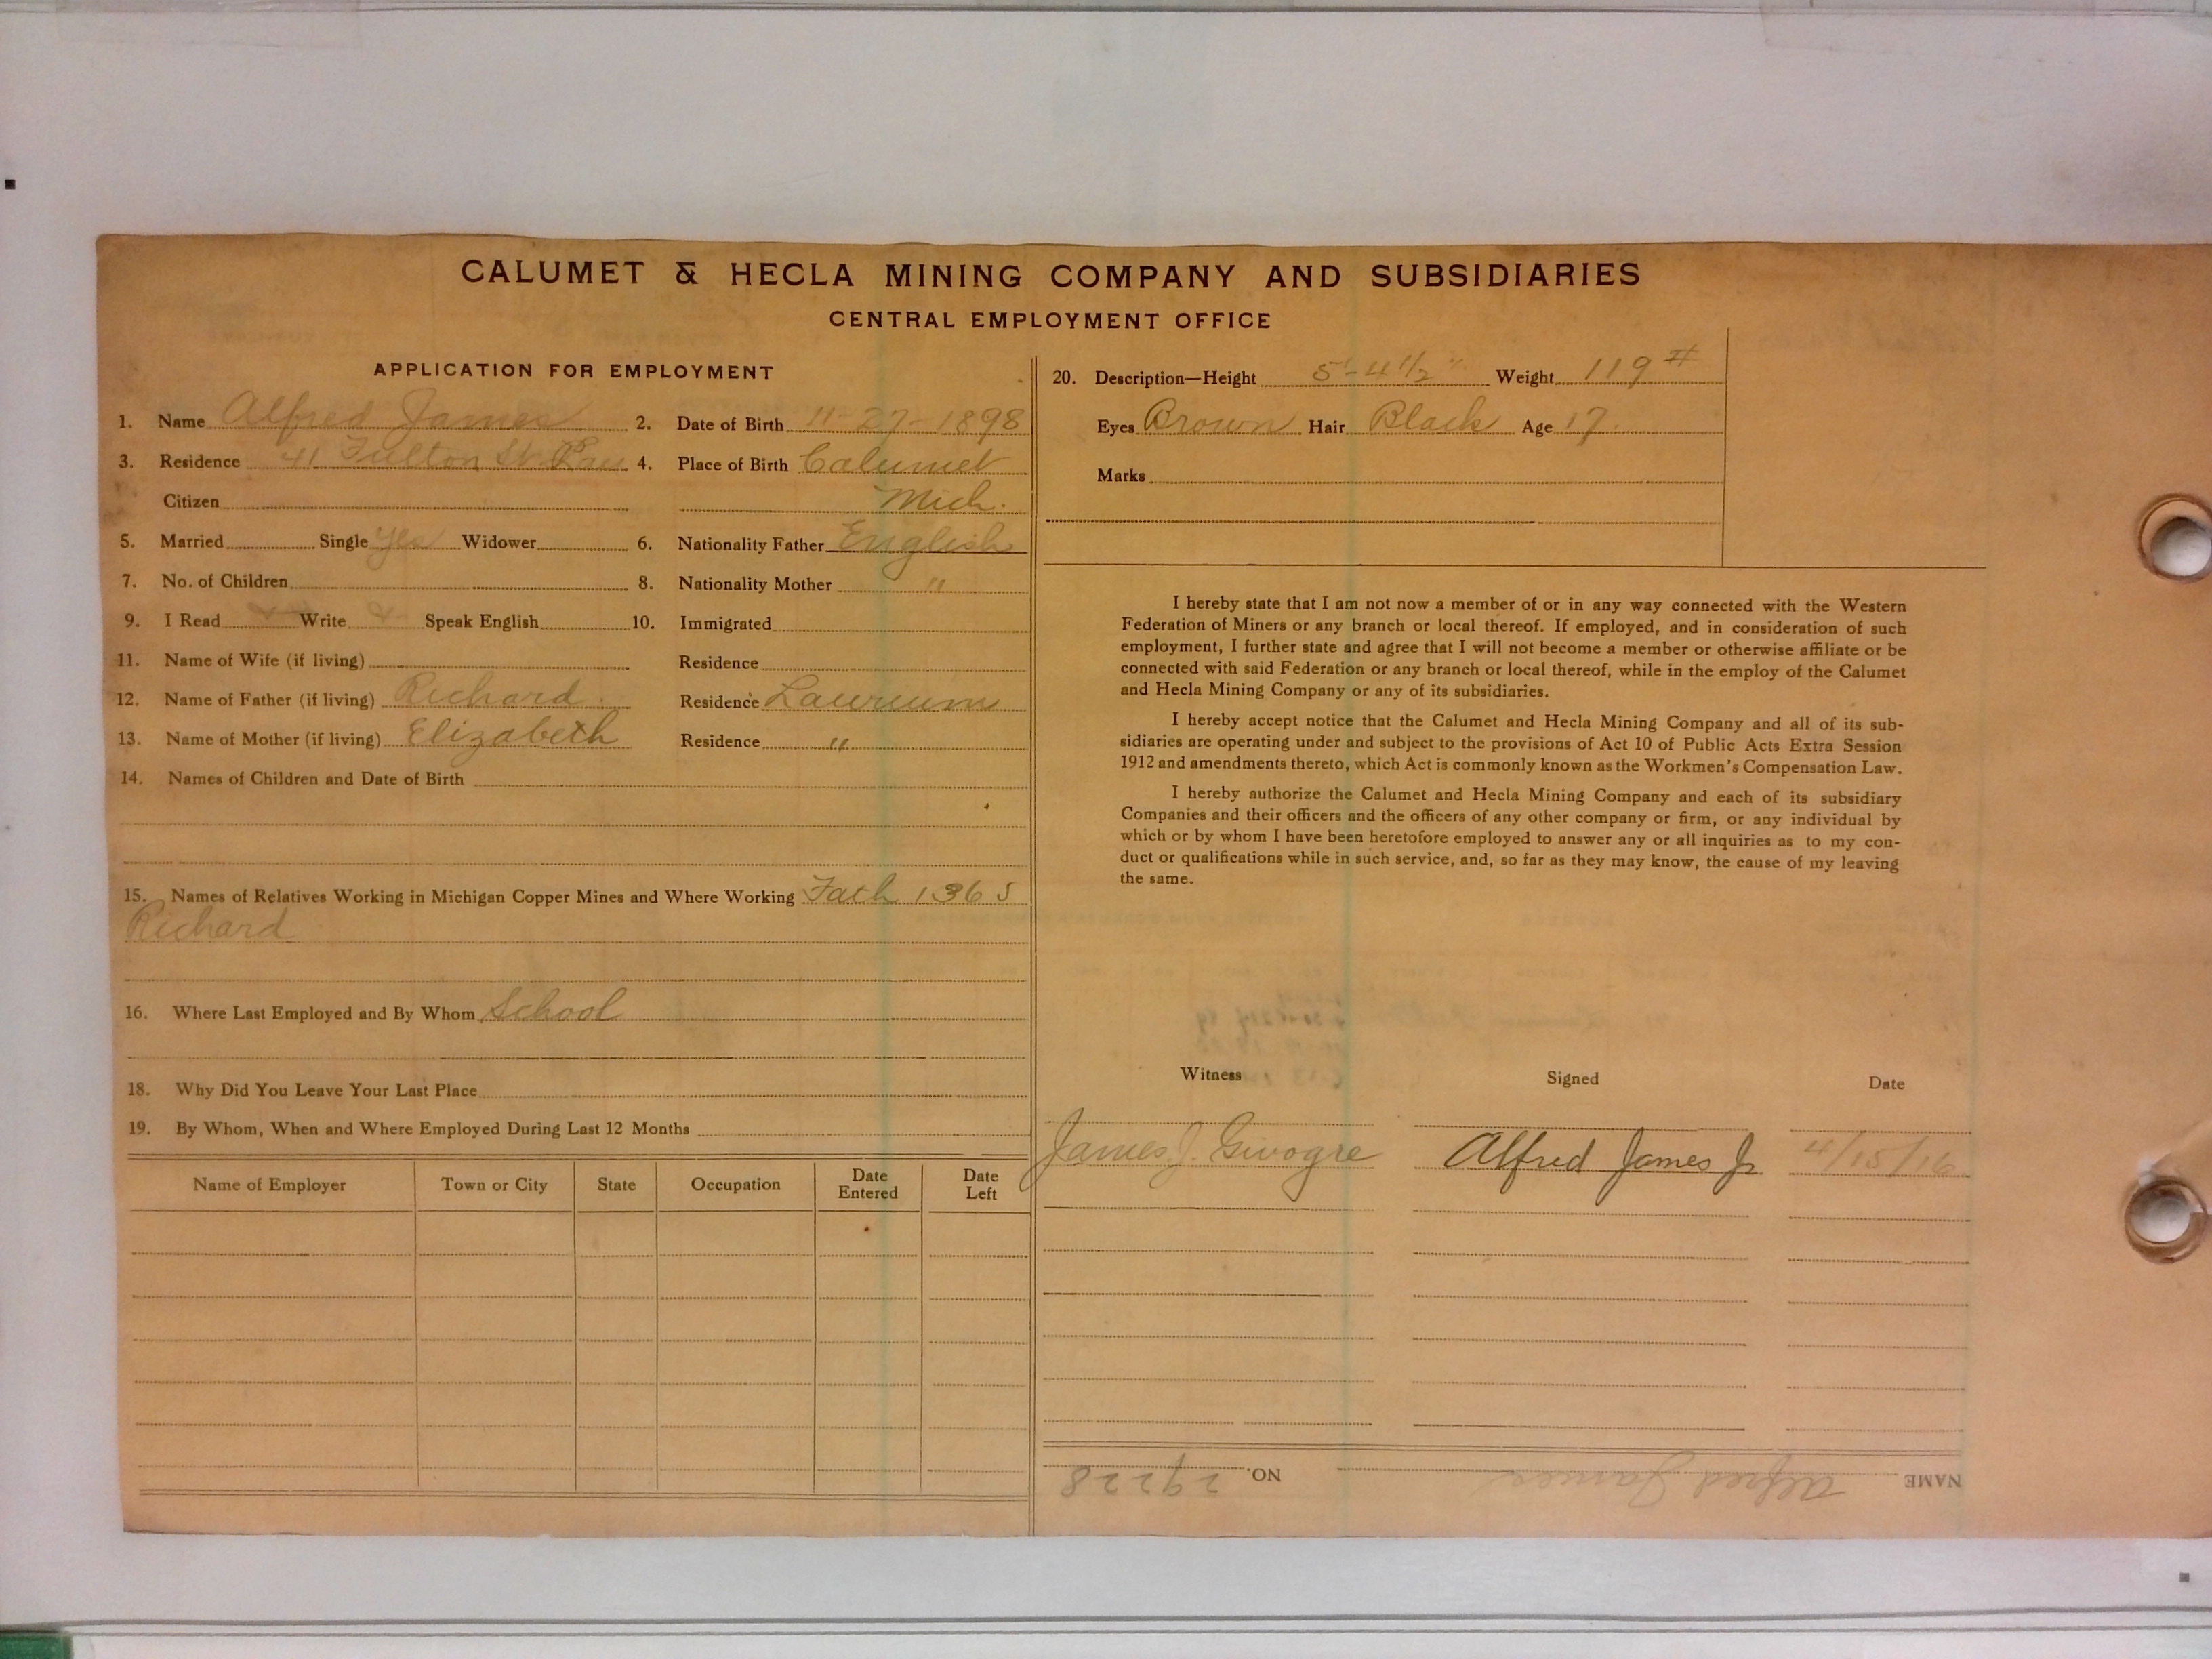 CALUMET & HECLA MINING COMPANY AND SUBSIDIARIES
CENTRAL EMPLOYMENT OFFICE
APPLICATION FOR EMPLOYMENT
1. Name Alfred James 2. Date of Birth 11-27-1898
3. Residence 41 Fulton St. 4. Place of Birth Calumet
Citizen Mich.
5. Married Single Yes Widower 6. Nationality Father English
7. No. of Children 8. Nationality Mother "
9. I Read Write Speak English 10. Immigrated
11. Name of Wife (if living) Residence
12. Name of Father (if living) Richard Residence Laurium
13. Name of Mother (if living) Elizabeth Residence "
14. Names of Children and Date of Birth
15. Names of Relatives Working in Michigan Copper Mines and Where Working Fath
Richard
16. Where Last Employed and By Whom School
18. Why Did You Leave Your Last Place
19. By Whom, When and Where Employed During Last 12 Months
Name of Employer Town or City State Occupation Date Entered Date Left
20. Description—Height 5'-4 1/2" Weight 119 #
Eyes Brown Hair Black Age 17.
Marks
I hereby state that I am not now a member of or in any way connected with the Western
Federation of Miners or any branch or local thereof. If employed, and in consideration of such
employment, I further state and agree that I will not become a member or otherwise affiliate or be
connected with said Federation or any branch or local thereof, while in the employ of the Calumet
and Hecla Mining Company or any of its subsidiaries.
I hereby accept notice that the Calumet and Hecla Mining Company and all of its sub-
sidiaries are operating under and subject to the provisions of Act 10 of Public Acts Extra Session
1912 and amendments thereto, which Act is commonly known as the Workmen's Compensation Law.
I hereby authorize the Calumet and Hecla Mining Company and each of its subsidiary
Companies and their officers and the officers of any other company or firm, or any individual by
which or by whom I have been heretofore employed to answer any or all inquiries as to my con-
duct or qualifications while in such service, and, so far as they may know, the cause of my leaving
the same.
Witness Signed Date
James J. Alfred James Jr 4/15/16
NAME Alfred James NO. 29228